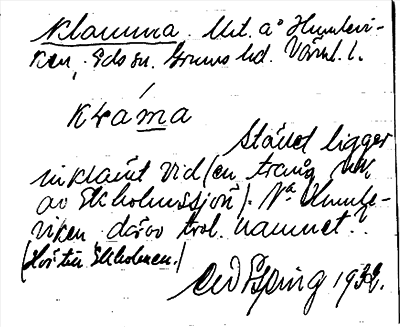 Klamma. Mt. a° Humlevi-
ken, Eds sn. Grums hd. Värml. l.
Kláma
Stället ligger
inklämt vid (en trång vik
av Ekholmssjön). Na Humle-
viken därav trol. namnet.
(Hör till Ekholmen.)
1932.